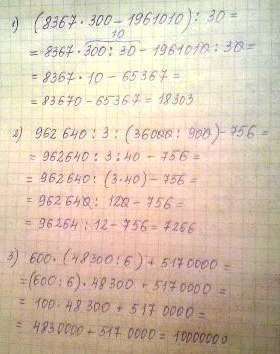 1) (8367 · 300 - 1961010) : 30 =
10
= 8367 · 300 : 30 - 1961010 : 30 =
= 8367 · 10 - 65367 =
= 83670 - 65367 = 18303
2) 962640 : 3 : (36000 : 900) - 756 =
= 962640 : 3 : 40 - 756 =
= 962640 : (3 · 40) - 756 =
= 962640 : 120 - 756 =
= 96264 : 12 - 756 = 7266
3) 600 · (48300 : 6) + 5170000 =
= (600 : 6) · 48300 + 5170000 =
= 100 · 48300 + 5170000 =
= 4830000 + 5170000 = 10000000